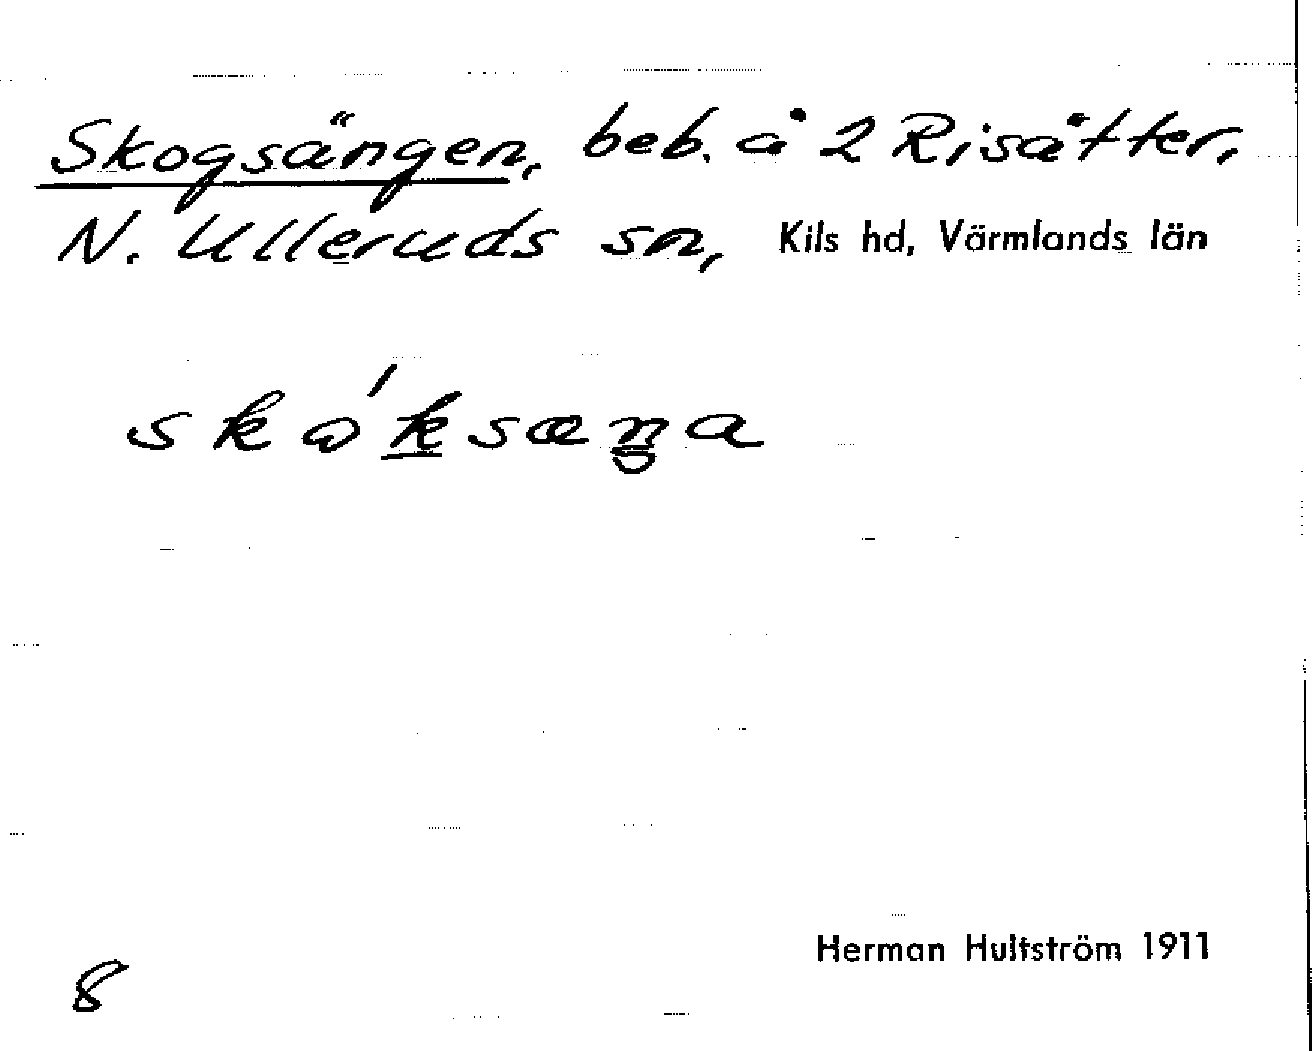 Skogsängen, beb. å 2 Risätter,
N. Ulleruds sn, Kils hd, Värmlands län
skɷ́ksæŋa
Herman Hultström 1911
8